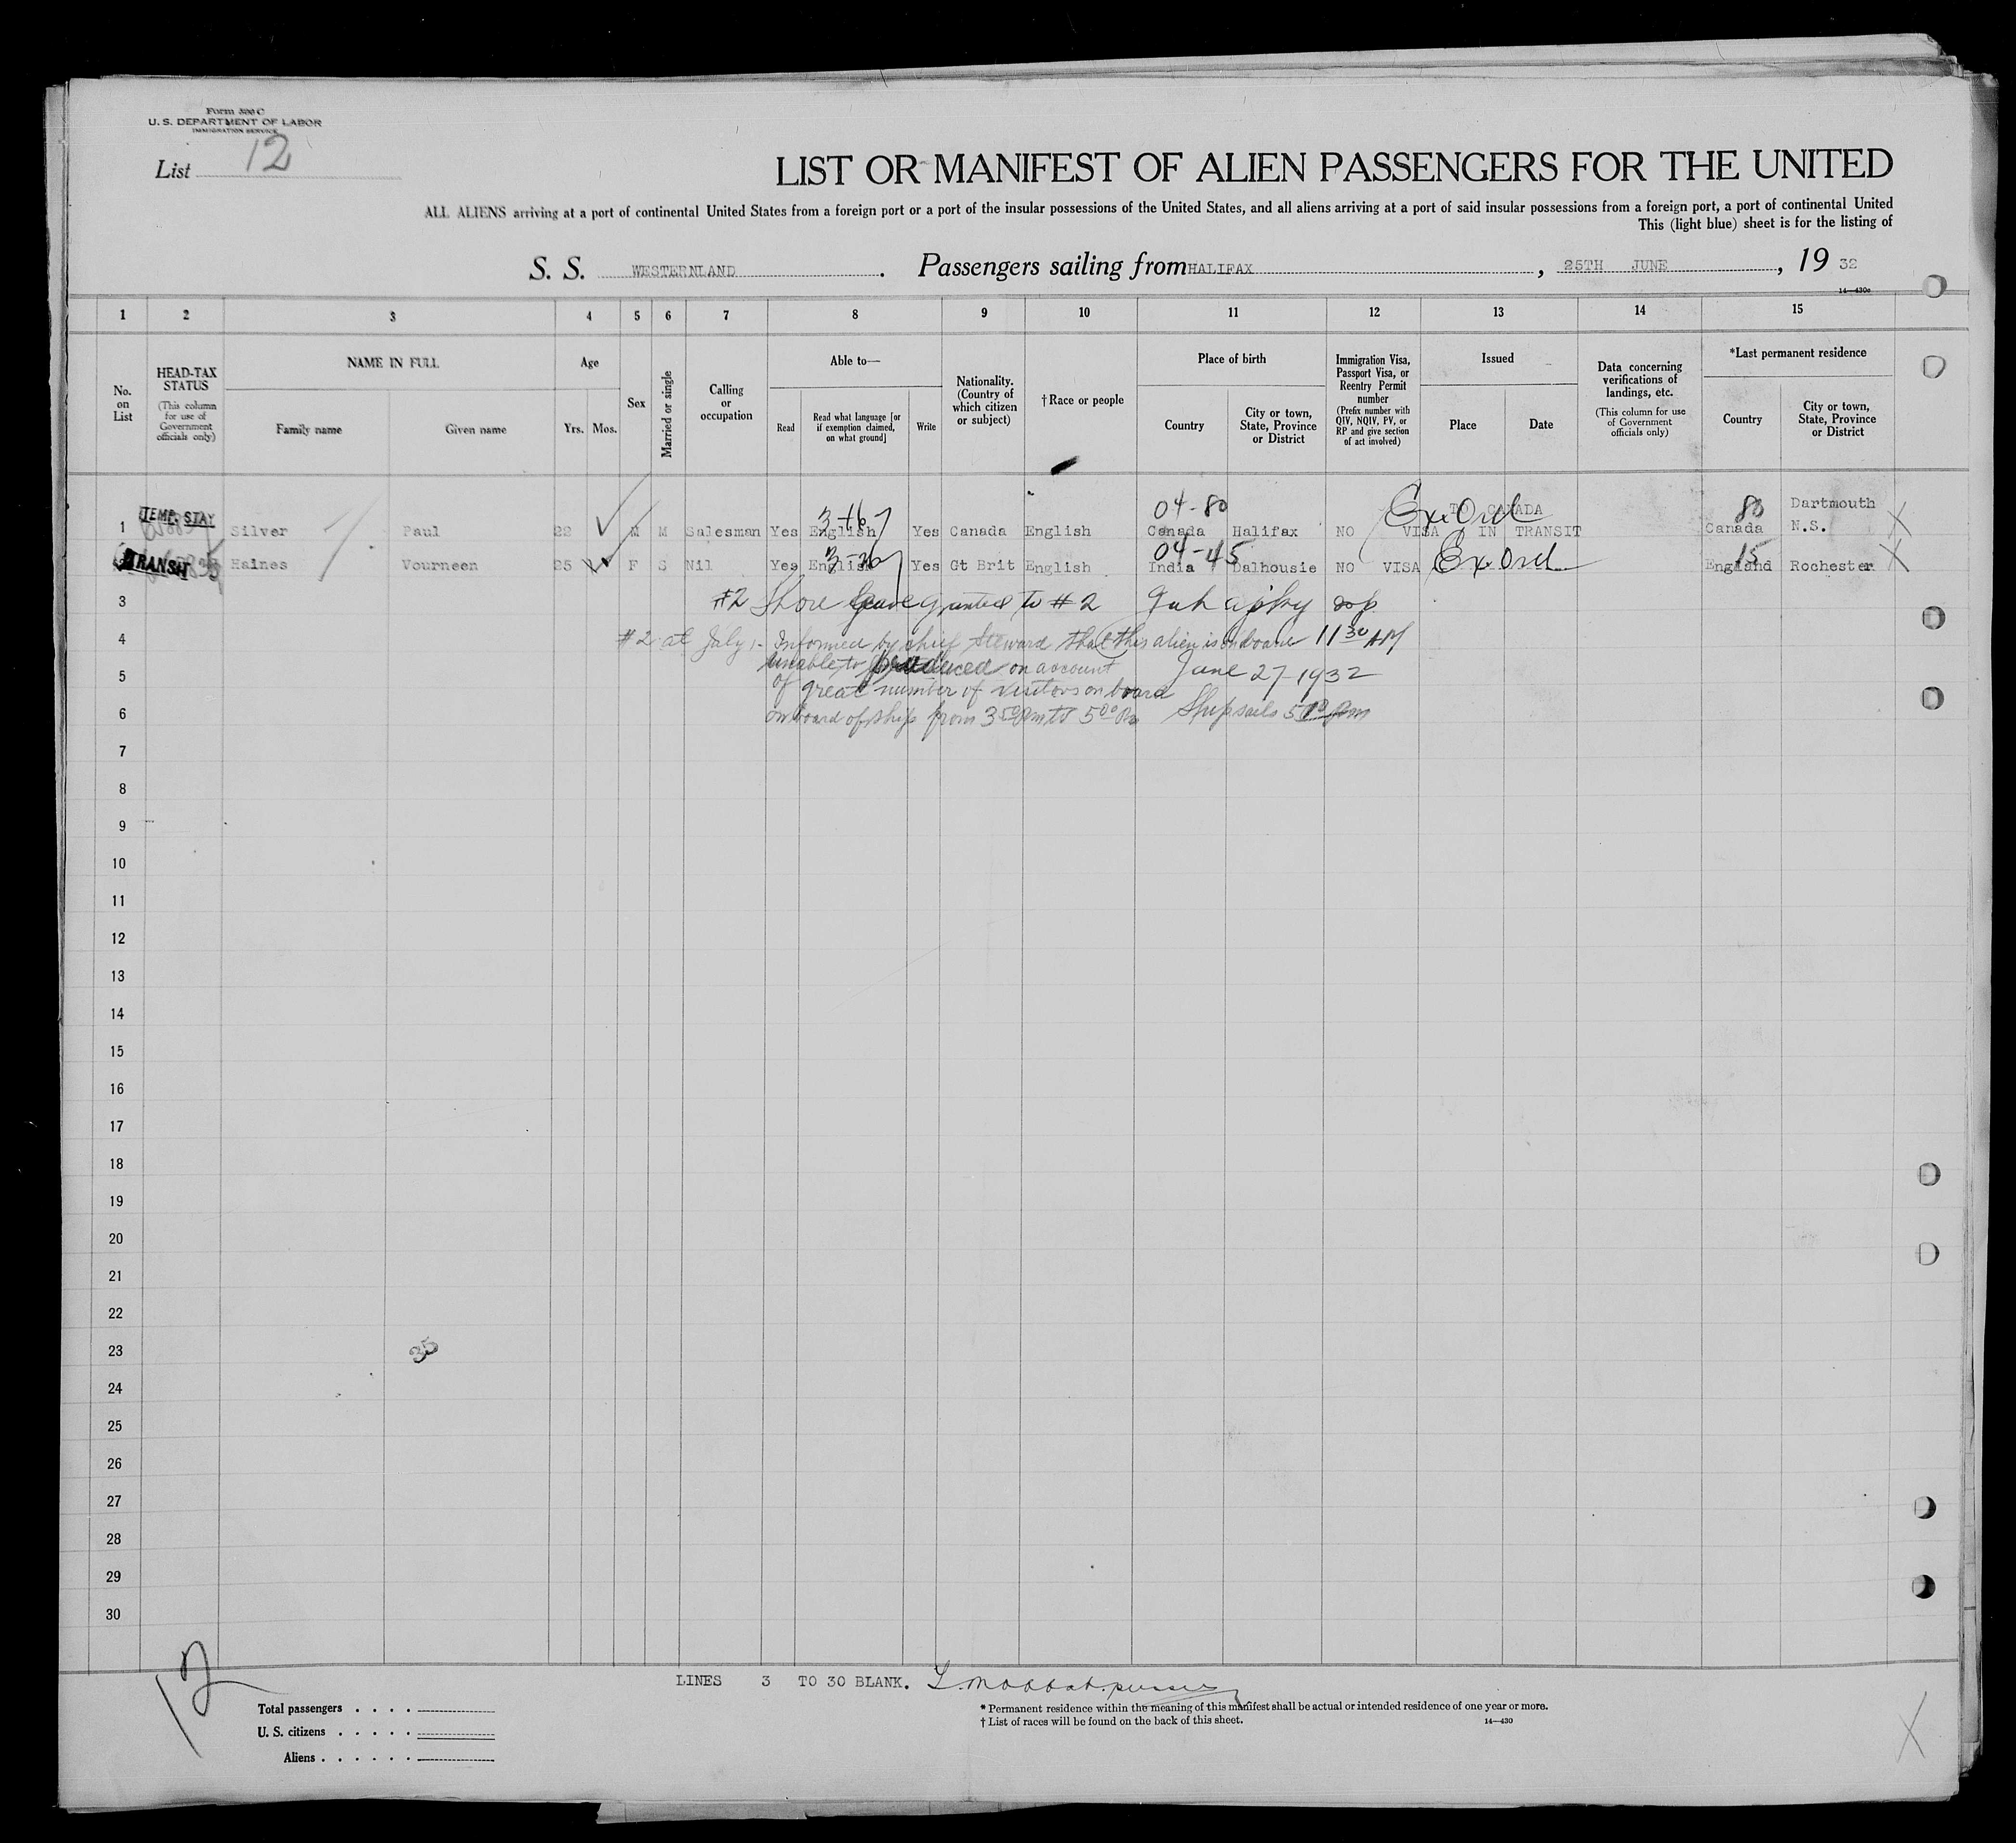 Form 500 C
U. S. DEPARTMENT OF LABOR
IMMIGRATION SERVICE
List 12
LIST OR MANIFEST OF ALIEN PASSENGERS FOR THE UNITED
ALL ALIENS arriving at a port of continental United States from a foreign port or a port of the insular possessions of the United States, and all aliens arriving at a port of said insular possessions from a foreign port, a port of continental United
This (light blue) sheet is for the listing of
S. S. WESTERNLAND. Passengers sailing from HALIFAX, 25TH JUNE, 19 32
14—430c
1 2 3 4 5 6 7 8 9 10 11 12 13 14 15
No. on List
HEAD-TAX STATUS (This column for use of Government officials only)
NAME IN FULL
Family name Given name
Age
Yrs. Mos.
Sex
Married or single
Calling or occupation
Able to—
Read
Read what language [or if exemption claimed, on what ground]
Write
Nationality. (Country of which citizen or subject)
†Race or people
Place of birth
Country
City or town, State, Province or District
Immigration Visa, Passport Visa, or Reentry Permit number (Prefix number with QIV, NQIV, PV, or RP and give section of act involved)
Issued
Place Date
Data concerning verifications of landings, etc. (This column for use of Government officials only)
*Last permanent residence
Country
City or town, State, Province or District
04-80 Ex Ord TO CANADA 80 Dartmouth
1 TEMP. STAY Silver Paul 22 M M Salesman Yes English Yes Canada English Canada Halifax NO VISA IN TRANSIT Canada N.S.
04-45 Ex Ord 15
TRANSIT Haines Vourneen 25 F S Nil Yes English Yes Gt Brit English India Dalhousie NO VISA England Rochester
3 #2 Shore leave granted to #2
4 #2 at July 1 - Informed by chief Steward that this alien is onboard 11 30 AM
5 unable to produced on account June 27 1932
of great number of visitors on board
6 on board of ship from 3 50 Pm to 5 00 Pm Ship sails 5 10 pm
7
8
9
10
11
12
13
14
15
16
17
18
19
20
21
22
23 35
24
25
26
27
28
29
30
12
LINES 3 TO 30 BLANK. purser
Total passengers
U. S. citizens
Aliens
* Permanent residence within the meaning of this manifest shall be actual or intended residence of one year or more.
† List of races will be found on the back of this sheet. 14—430